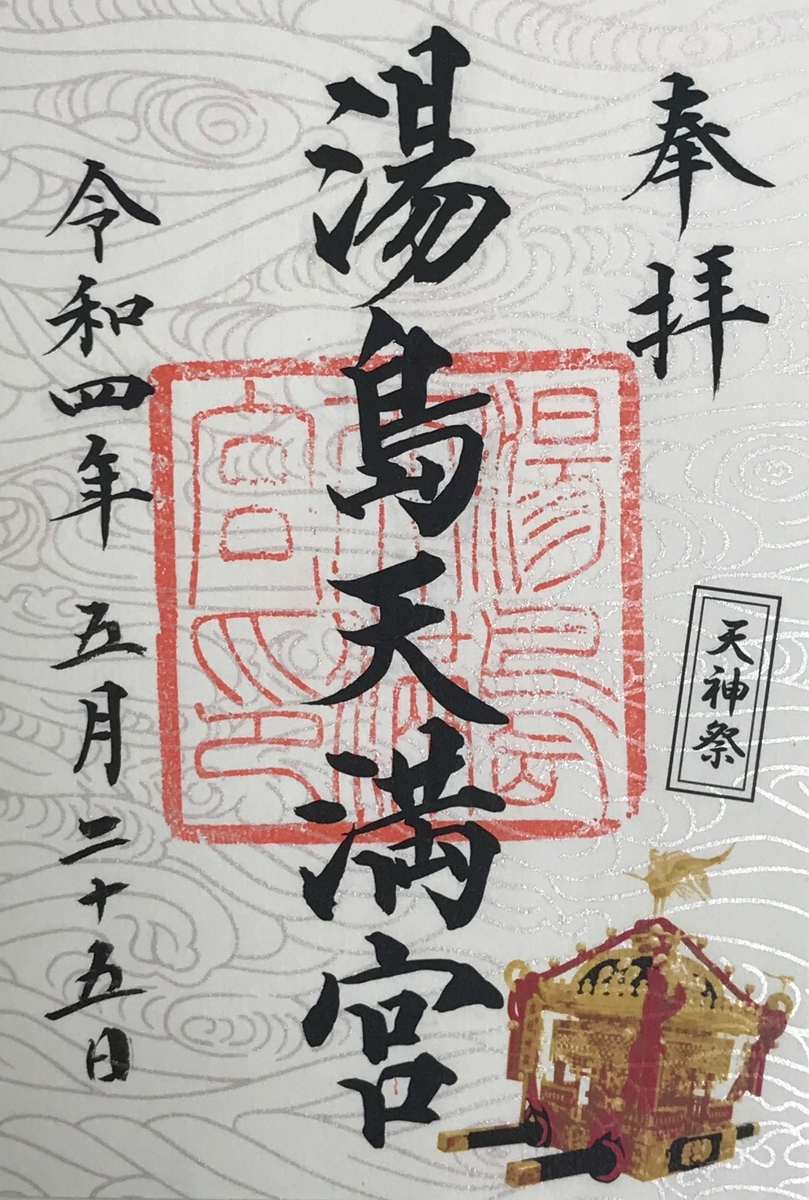 奉拝
天神祭
湯島天満宮
湯島天満宮之印
令和四年 五月二十五日